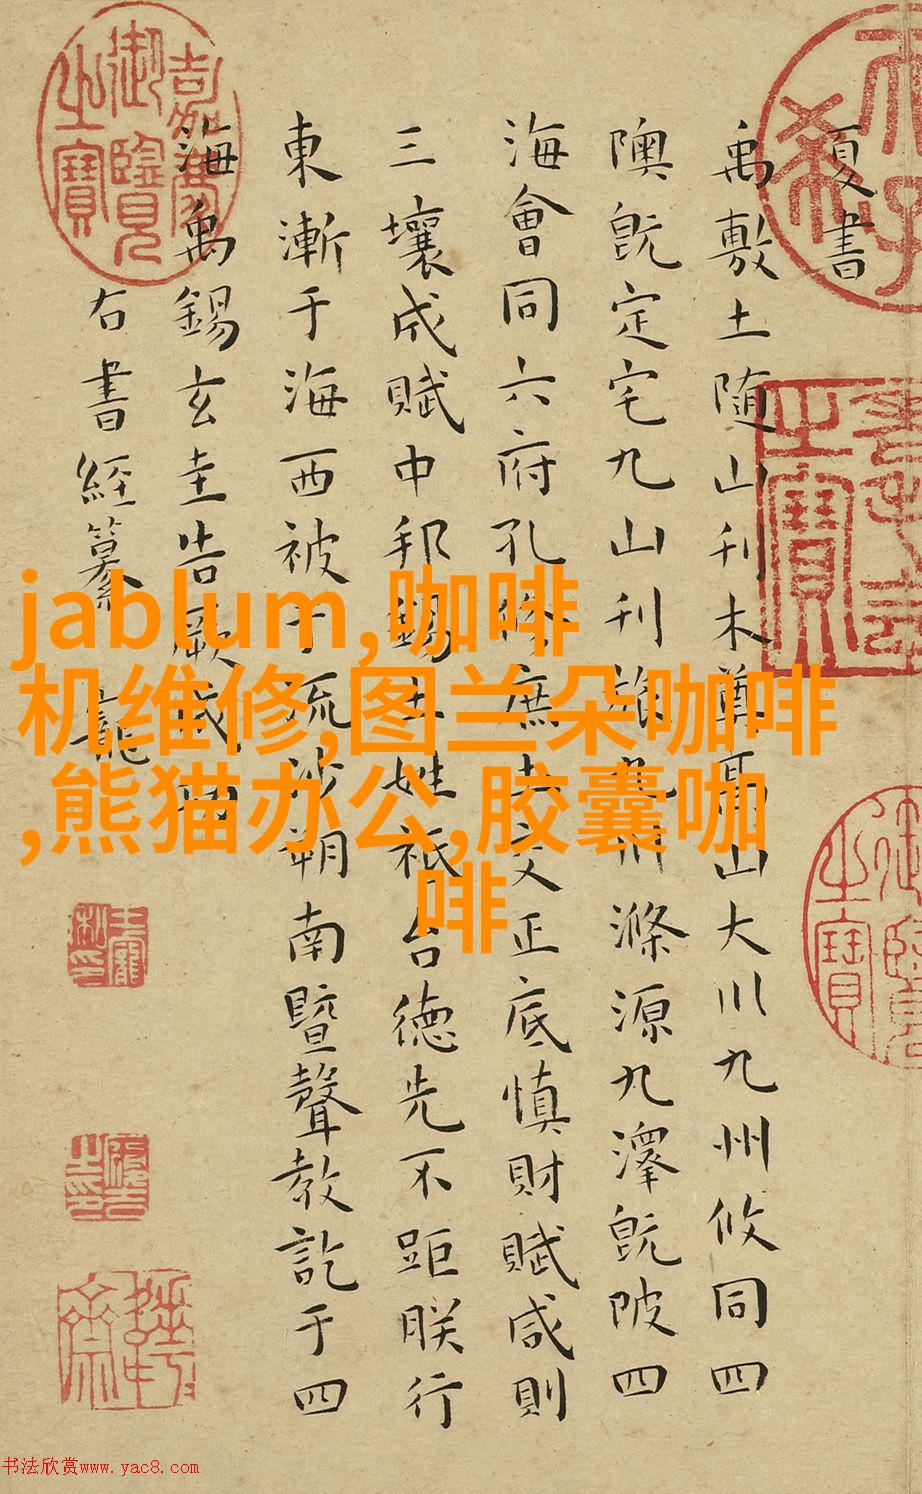 夏書
禹敷土随山刊木奠高山大川九州攸同四
隩既定宅九山刊旅九川滌源九澤既陂四
海會同六府孔修庶土交正底慎財賦咸則
三壤成賦中邦錫土姓祗台德先不距朕行
東漸于海西被于流沙朔南曁聲教訖于四
海禹錫玄圭告厥成功
右書經纂 寵
嘉慶御覽之寶
jablum,咖啡
机维修,图兰朵咖啡
,熊猫办公,胶囊咖
啡
书法欣赏www.yac8.com